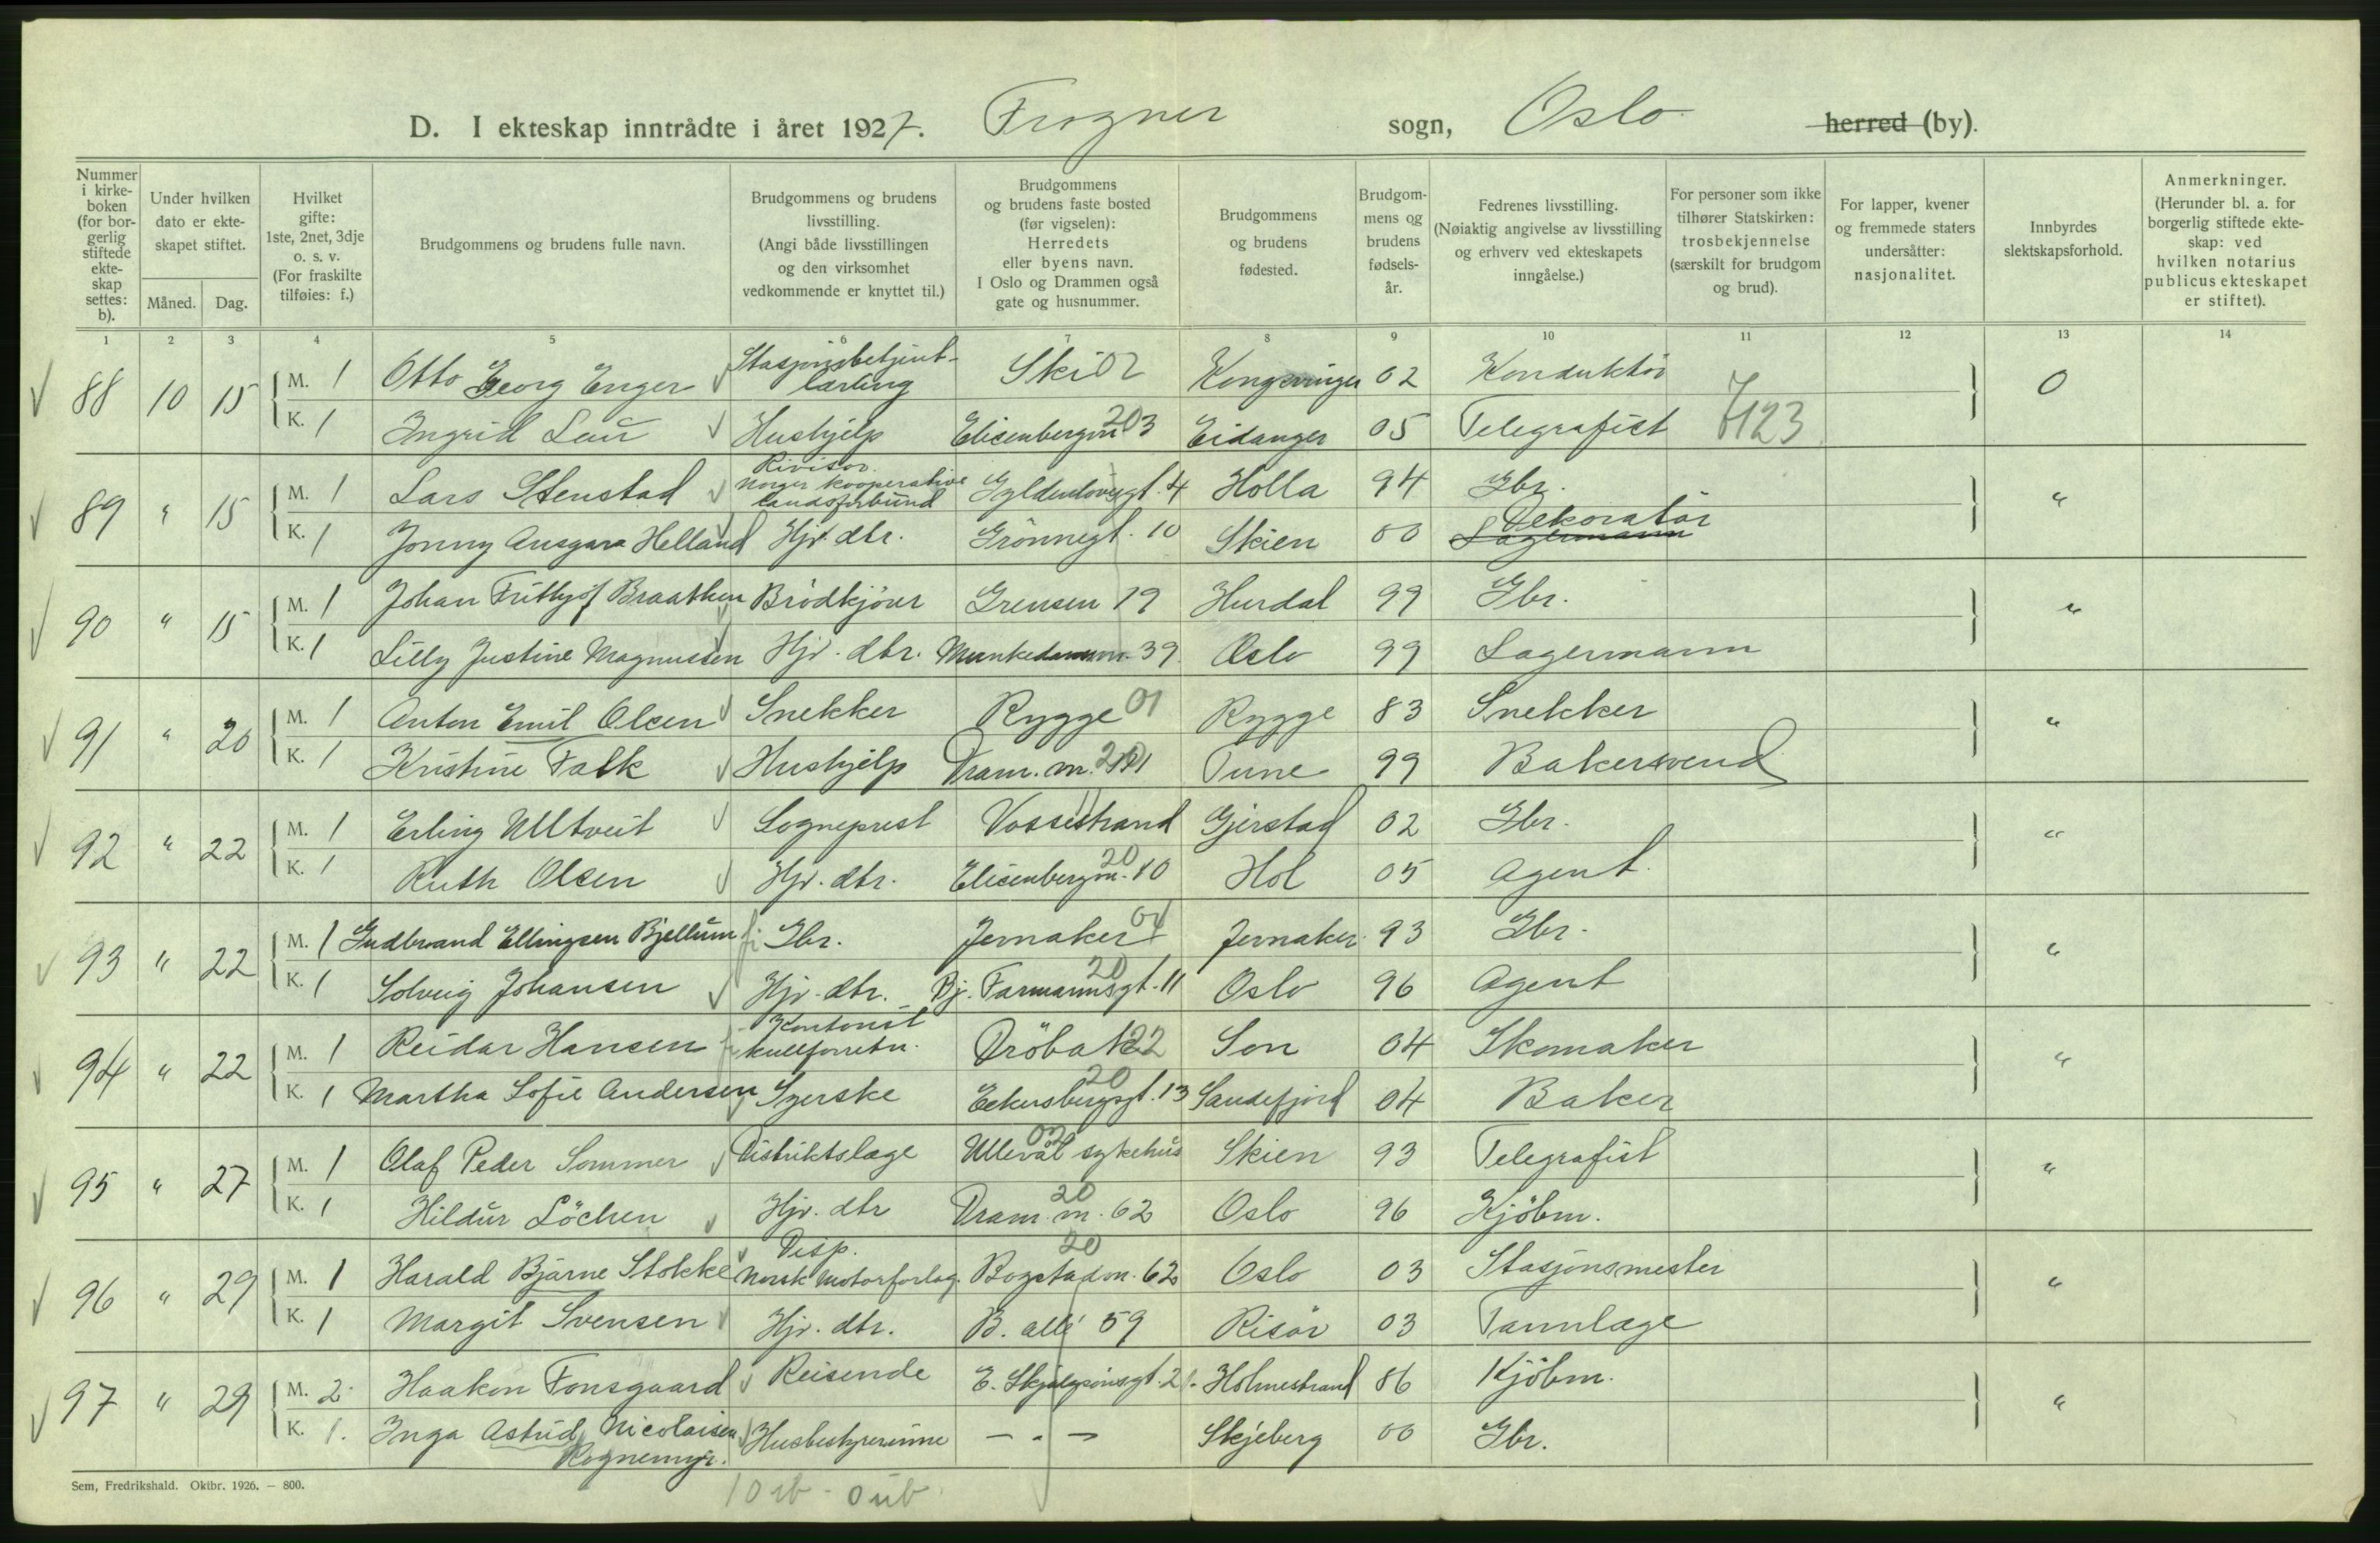 D. I ekteskap inntrådte i året 1927. Frogner sogn, Oslo herred (by).
Nummer i kirkeboken (for borgerlig stiftede ekteskap settes: b).
Under hvilken dato er ekteskapet stiftet.
Måned. Dag.
Hvilket gifte: 1ste, 2net, 3dje o. s. v. (For fraskilte tilføies: f.)
Brudgommens og brudens fulle navn.
Brudgommens og brudens livsstilling. (Angi både livsstillingen og den virksomhet vedkommende er knyttet til.)
Brudgommens og brudens faste bosted (før vigselen): Herredets eller byens navn. I Oslo og Drammen også gate og husnummer.
Brudgommens og brudens fødested.
Brudgommens og brudens fødselsår.
Fedrenes livsstilling. (Nøiaktig angivelse av livsstilling og erhverv ved ekteskapets inngåelse.)
For personer som ikke tilhører Statskirken: trosbekjennelse (særskilt for brudgom og brud).
For lapper, kvener og fremmede staters undersåtter: nasjonalitet.
Innbyrdes slektskapsforhold.
Anmerkninger. (Herunder bl. a. for borgerlig stiftede ekteskap: ved hvilken notarius publicus ekteskapet er stiftet).
1 2 3 4 5 6 7 8 9 10 11 12 13 14
88 10 15 M. 1 Otto Georg Enger Stasjonsbetjent-lærling Ski 02 Kongsvinger 02 Konduktør 0
K. 1 Ingrid Lau Hushjelp Elisenbergvn 20 3 Eidanger 05 Telegrafist 7123
89 " 15 M. 1 Lars Stenstad Revisor Norges kooperative landsforbund Gyldenløvesgt. 4 Holla 94 Gbr. "
K. 1 Jonny Ansgara Helland Hjv. dtr. Grönnegt. 10 Skien 00 Lagermann Dekoratör
90 " 15 M. 1 Johan Frithjof Braathen Brödkjörer Grensen 19 Hurdal 99 Gbr. "
K. 1 Lilly Justine Magnussen Hjv. dtr. Munkedamsvn. 39 Oslo 99 Lagermann
91 " 20 M. 1 Anton Emil Olsen Snekker Rygge 01 Rygge 83 Snekker "
K. 1 Kristine Falk Hushjelp Dram. vn. Tune 99 Bakersvend
92 " 22 M. 1 Erling Ulltveit Sogneprest Vossestrand 11 Gjerstad 02 Gbr. "
K. 1 Ruth Olsen Hjv. dtr. Elisenbergvn. 20 10 Hol 05 Agent
93 " 22 M. 1 Gudbrand Ellingsen Bjellum Gbr. Jevnaker 04 Jevnaker 93 Gbr. "
K. 1 Solveig Johansen Hjv. dtr. Bj. Farmannsgt. 20 11 Oslo 96 Agent
94 " 22 M. 1 Reidar Hansen Kontorist kullforretn. Dröbak 22 Son 04 Skomaker "
K. 1 Martha Sofie Andersen Syerske Eckersbergsgt. 20 13 Sandefjord 04 Baker
95 " 27 M. 1 Olaf Peder Sommer Distriktslæge Ullevål sykehus Skien 93 Telegrafist "
K. 1 Hildur Löchen Hjv. dtr Dram. vn. 20 62 Oslo 96 Kjöbm.
96 " 29 M. 1 Harald Bjarne Stokke Disp. Norsk Motorforlag. Bogstadvn. 20 62 Oslo 03 Stasjonsmester "
K. 1 Margit Svensen Hjv. dtr. B. allé 59 Risör 03 Tannlæge
97 " 29 M. 2 Haakon Fonsgaard Reisende E. Skjalgssönsgt. 21. Holmestrand 86 Kjöbm. "
K. 1. Inga Astrid Nicolaisen Rognemyr. Husbestyrerinne — " — Skjeberg 00 Gbr.
Sem, Fredrikshald. Oktbr. 1926. – 800.
10 ib - 0 ub